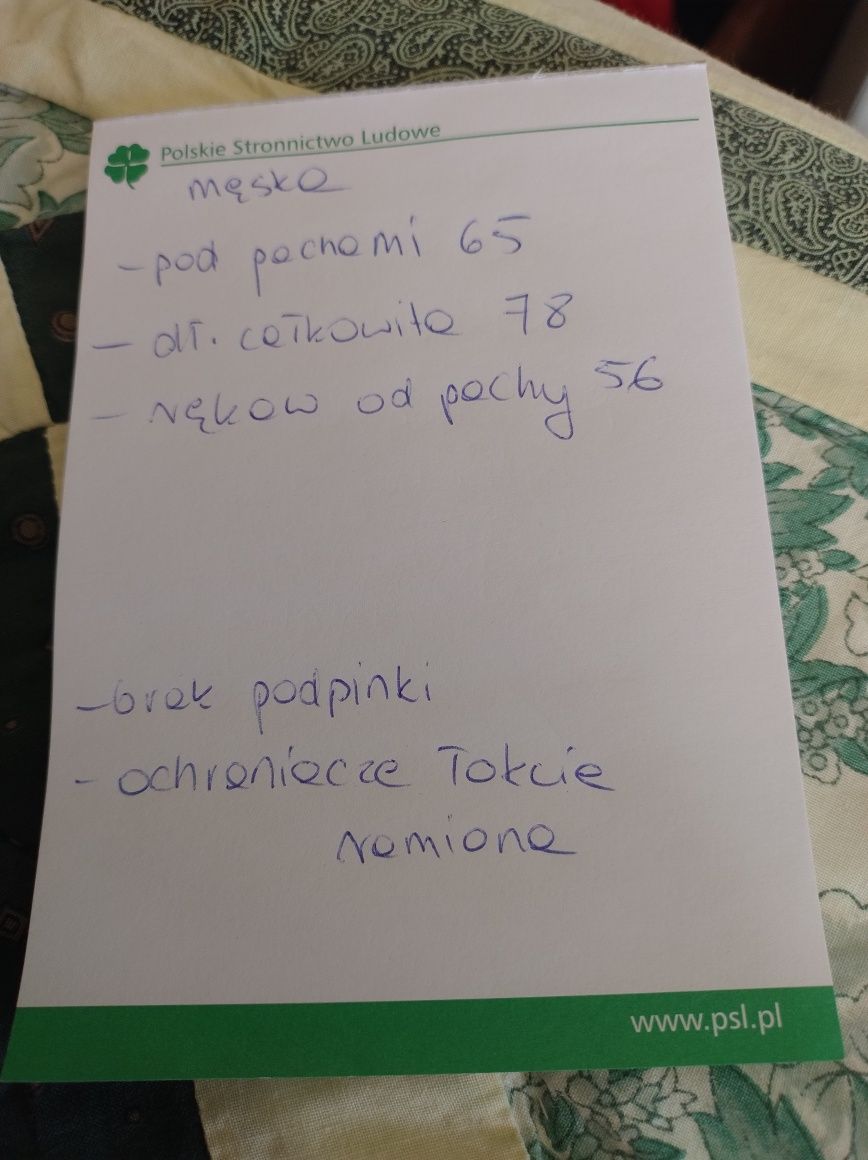 Polskie Stronnictwo Ludowe
męska
- pod pachami 65
- dł. całkowita 78
- rękaw od pachy 56
- brak podpinki
- ochraniacze łokcie
ramiona
www.psl.pl